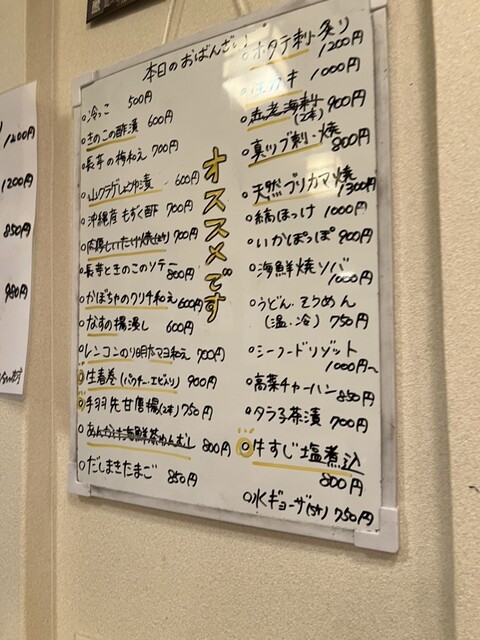 本日のおばんざい
冷っこ 500円
きのこの酢漬 600円
長芋の梅和え 700円
山クラゲしょうゆ漬 600円
沖縄産もずく酢 700円
700円
長芋ときのこのソテー 800円
かぼちゃのクリチ和え 600円
なすの揚浸し 600円
レンコンの明太マヨ和え 700円
生春巻(パクチー、エビ入り) 900円
手羽先甘唐揚(2本) 750円
あんかけ海鮮茶わんむし 800円
だしまきたまご 850円
オススメです
ホタテ刺・炙り 1200円
カキ 1000円
海刺(2本) 900円
真ツブ刺・焼 800円
天然ブリカマ焼 1300円
縞ほっけ 1000円
いかぽっぽ 900円
海鮮焼ソバ 1000円
うどん・そうめん
(温・冷) 750円
シーフードリゾット
1000円~
高菜チャーハン 850円
タラ子茶漬 700円
牛すじ塩煮込
800円
水ギョーザ(5ケ) 750円
1200円
1200円
850円
980円